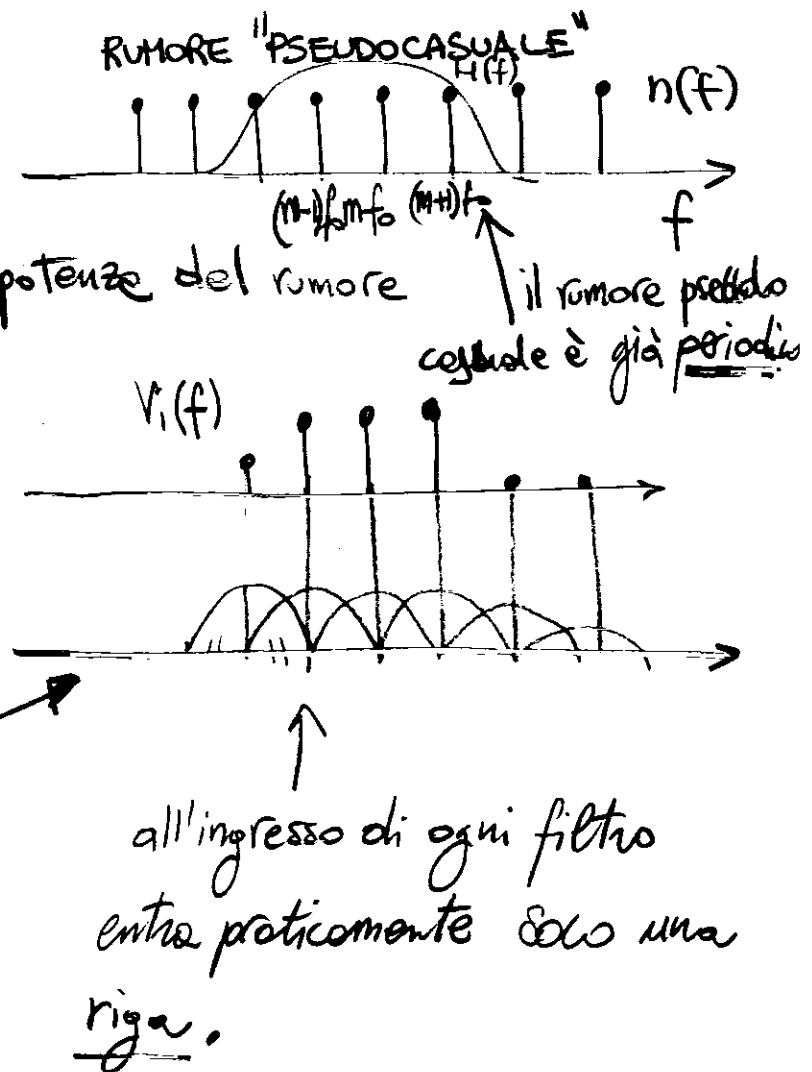 RUMORE "PSEUDOCASUALE"
H(f)
n(f)
(m-1)f₀ mf₀ (m+1)f₀
f
potenza del rumore
il rumore pseudo
casuale è già periodico
V₁(f)
all'ingresso di ogni filtro
entra praticamente solo una
riga.